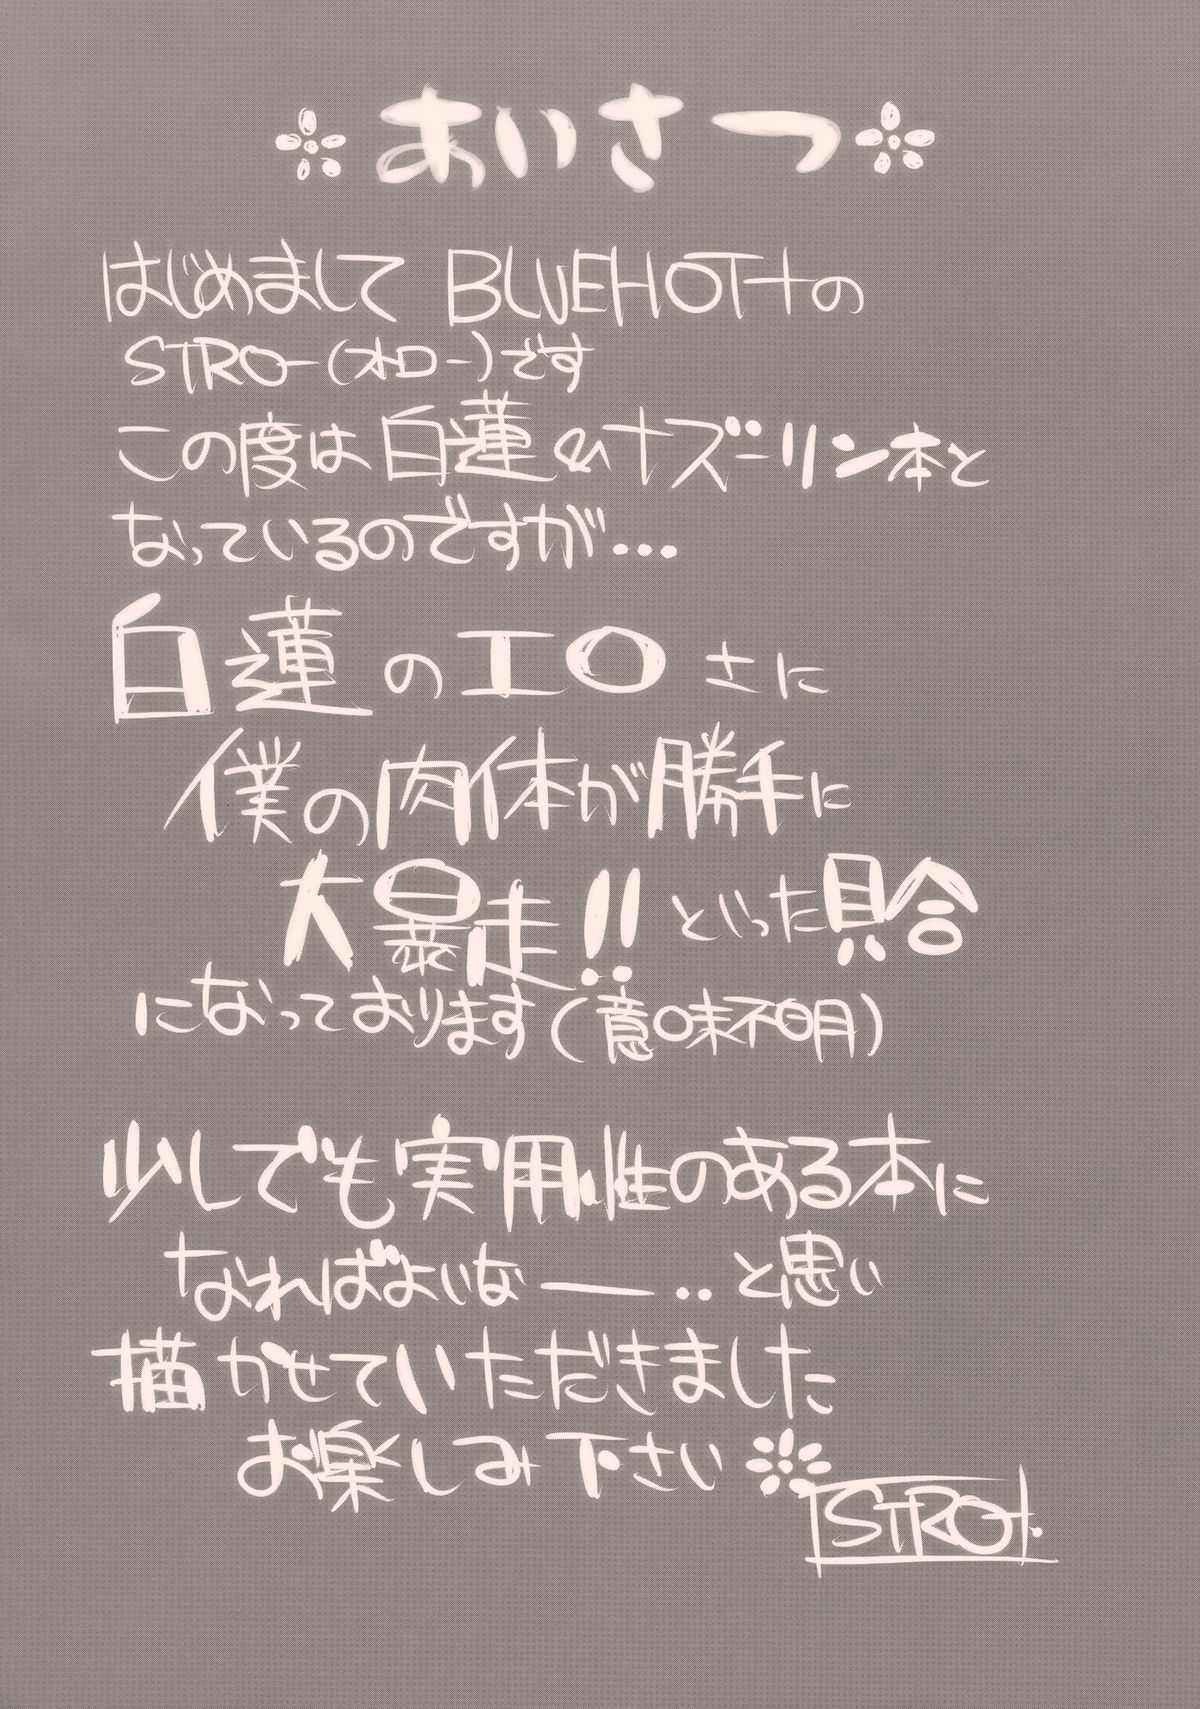 あいさつ
はじめまして BLUEHOT+の
STRO-(オロー)です
この度は白蓮&ナズーリン本と
なっているのですが…
白蓮のエロさに
僕の肉体が勝手に
大暴走!!といった具合
になっております(意味不明)
少しでも実用性のある本に
なればよいなー‥と思い
描かせていただきました
お楽しみ下さい
STRO+.